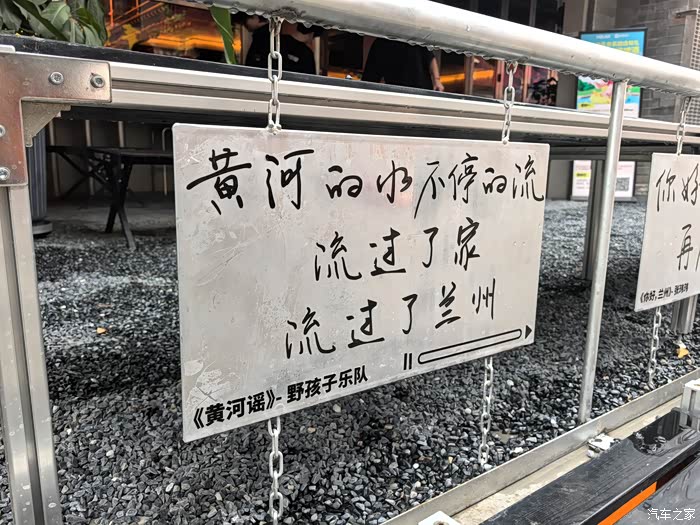 黄河的水不停的流
流过了家
流过了兰州
《黄河谣》- 野孩子乐队
你好
再
《你好，兰州》- 张玮玮
汽车之家